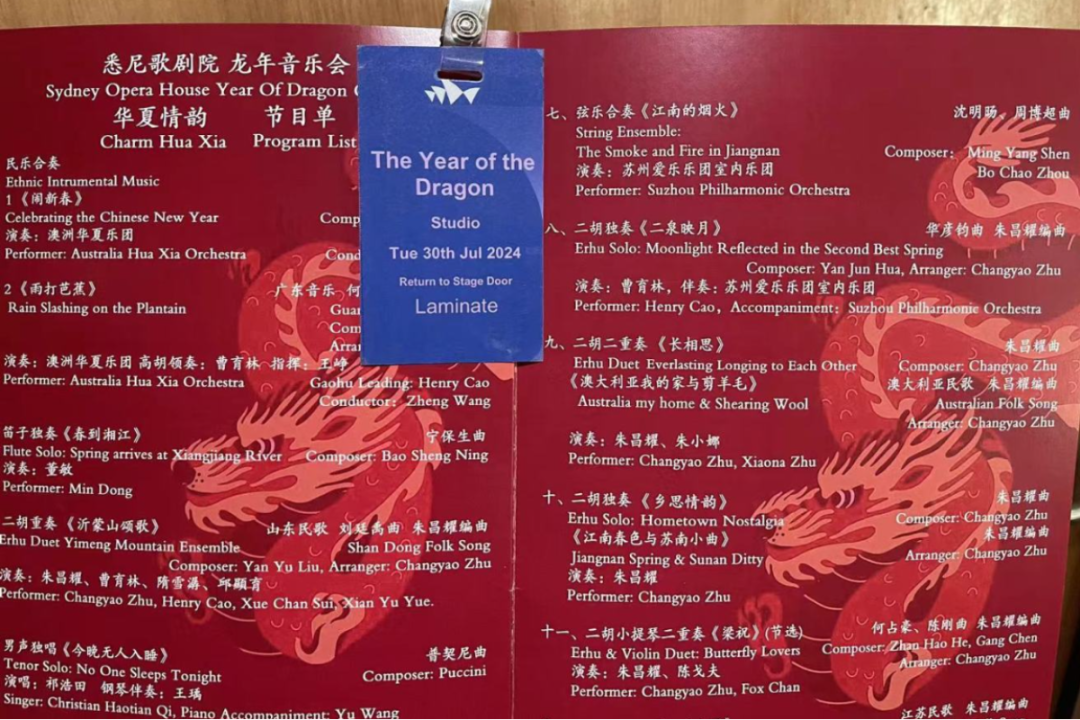 悉尼歌剧院 龙年音乐会
Sydney Opera House Year Of Dragon
华夏情韵 节目单
Charm Hua Xia Program List
民乐合奏
Ethnic Intrumental Music
1《闹新春》
Celebrating the Chinese New Year
演奏：澳洲华夏乐团
Performer: Australia Hua Xia Orchestra
2《雨打芭蕉》 广东音乐 何
Rain Slashing on the Plantain
演奏：澳洲华夏乐团 高胡领奏：曹育林 指挥：王峥
Performer: Australia Hua Xia Orchestra Gaohu Leading: Henry Cao
Conductor: Zheng Wang
笛子独奏《春到湘江》 宁保生曲
Flute Solo: Spring arrives at Xiangjiang River Composer: Bao Sheng Ning
演奏：董敏
Performer: Min Dong
二胡重奏《沂蒙山颂歌》 山东民歌 刘廷禹曲 朱昌耀编曲
Erhu Duet Yimeng Mountain Ensemble Shan Dong Folk Song
Composer: Yan Yu Liu, Arranger: Changyao Zhu
演奏：朱昌耀、曹育林、隋雪潺、邱顯育
Performer: Changyao Zhu, Henry Cao, Xue Chan Sui, Xian Yu Yue.
男声独唱《今晚无人入睡》 普契尼曲
Tenor Solo: No One Sleeps Tonight Composer: Puccini
演唱：祁浩田 钢琴伴奏：王瑀
Singer: Christian Haotian Qi, Piano Accompaniment: Yu Wang
The Year of the
Dragon
Studio
Tue 30th Jul 2024
Return to Stage Door
Laminate
七、弦乐合奏《江南的烟火》 沈明旸、周博超曲
String Ensemble:
The Smoke and Fire in Jiangnan Composer: Ming Yang Shen
Bo Chao Zhou
演奏：苏州爱乐乐团室内乐团
Performer: Suzhou Philharmonic Orchestra
八、二胡独奏《二泉映月》 华彦钧曲 朱昌耀编曲
Erhu Solo: Moonlight Reflected in the Second Best Spring
Composer: Yan Jun Hua, Arranger: Changyao Zhu
演奏：曹育林，伴奏：苏州爱乐乐团室内乐团
Performer: Henry Cao, Accompaniment: Suzhou Philharmonic Orchestra
九、二胡二重奏《长相思》 朱昌耀曲
Erhu Duet Everlasting Longing to Each Other Composer: Changyao Zhu
《澳大利亚我的家与剪羊毛》 澳大利亚民歌 朱昌耀编曲
Australia my home & Shearing Wool Australian Folk Song
Arranger: Changyao Zhu
演奏：朱昌耀、朱小娜
Performer: Changyao Zhu, Xiaona Zhu
十、二胡独奏《乡思情韵》 朱昌耀曲
Erhu Solo: Hometown Nostalgia Composer: Changyao Zhu
《江南春色与苏南小曲》 朱昌耀编曲
Jiangnan Spring & Sunan Ditty Arranger: Changyao Zhu
演奏：朱昌耀
Performer: Changyao Zhu
十一、二胡小提琴二重奏《梁祝》(节选) 何占豪、陈刚曲 朱昌耀编曲
Erhu & Violin Duet: Butterfly Lovers Composer: Zhan Hao He, Gang Chen
Arranger: Changyao Zhu
演奏：朱昌耀、陈戈夫
Performer: Changyao Zhu, Fox Chan
江苏民歌 朱昌耀编曲